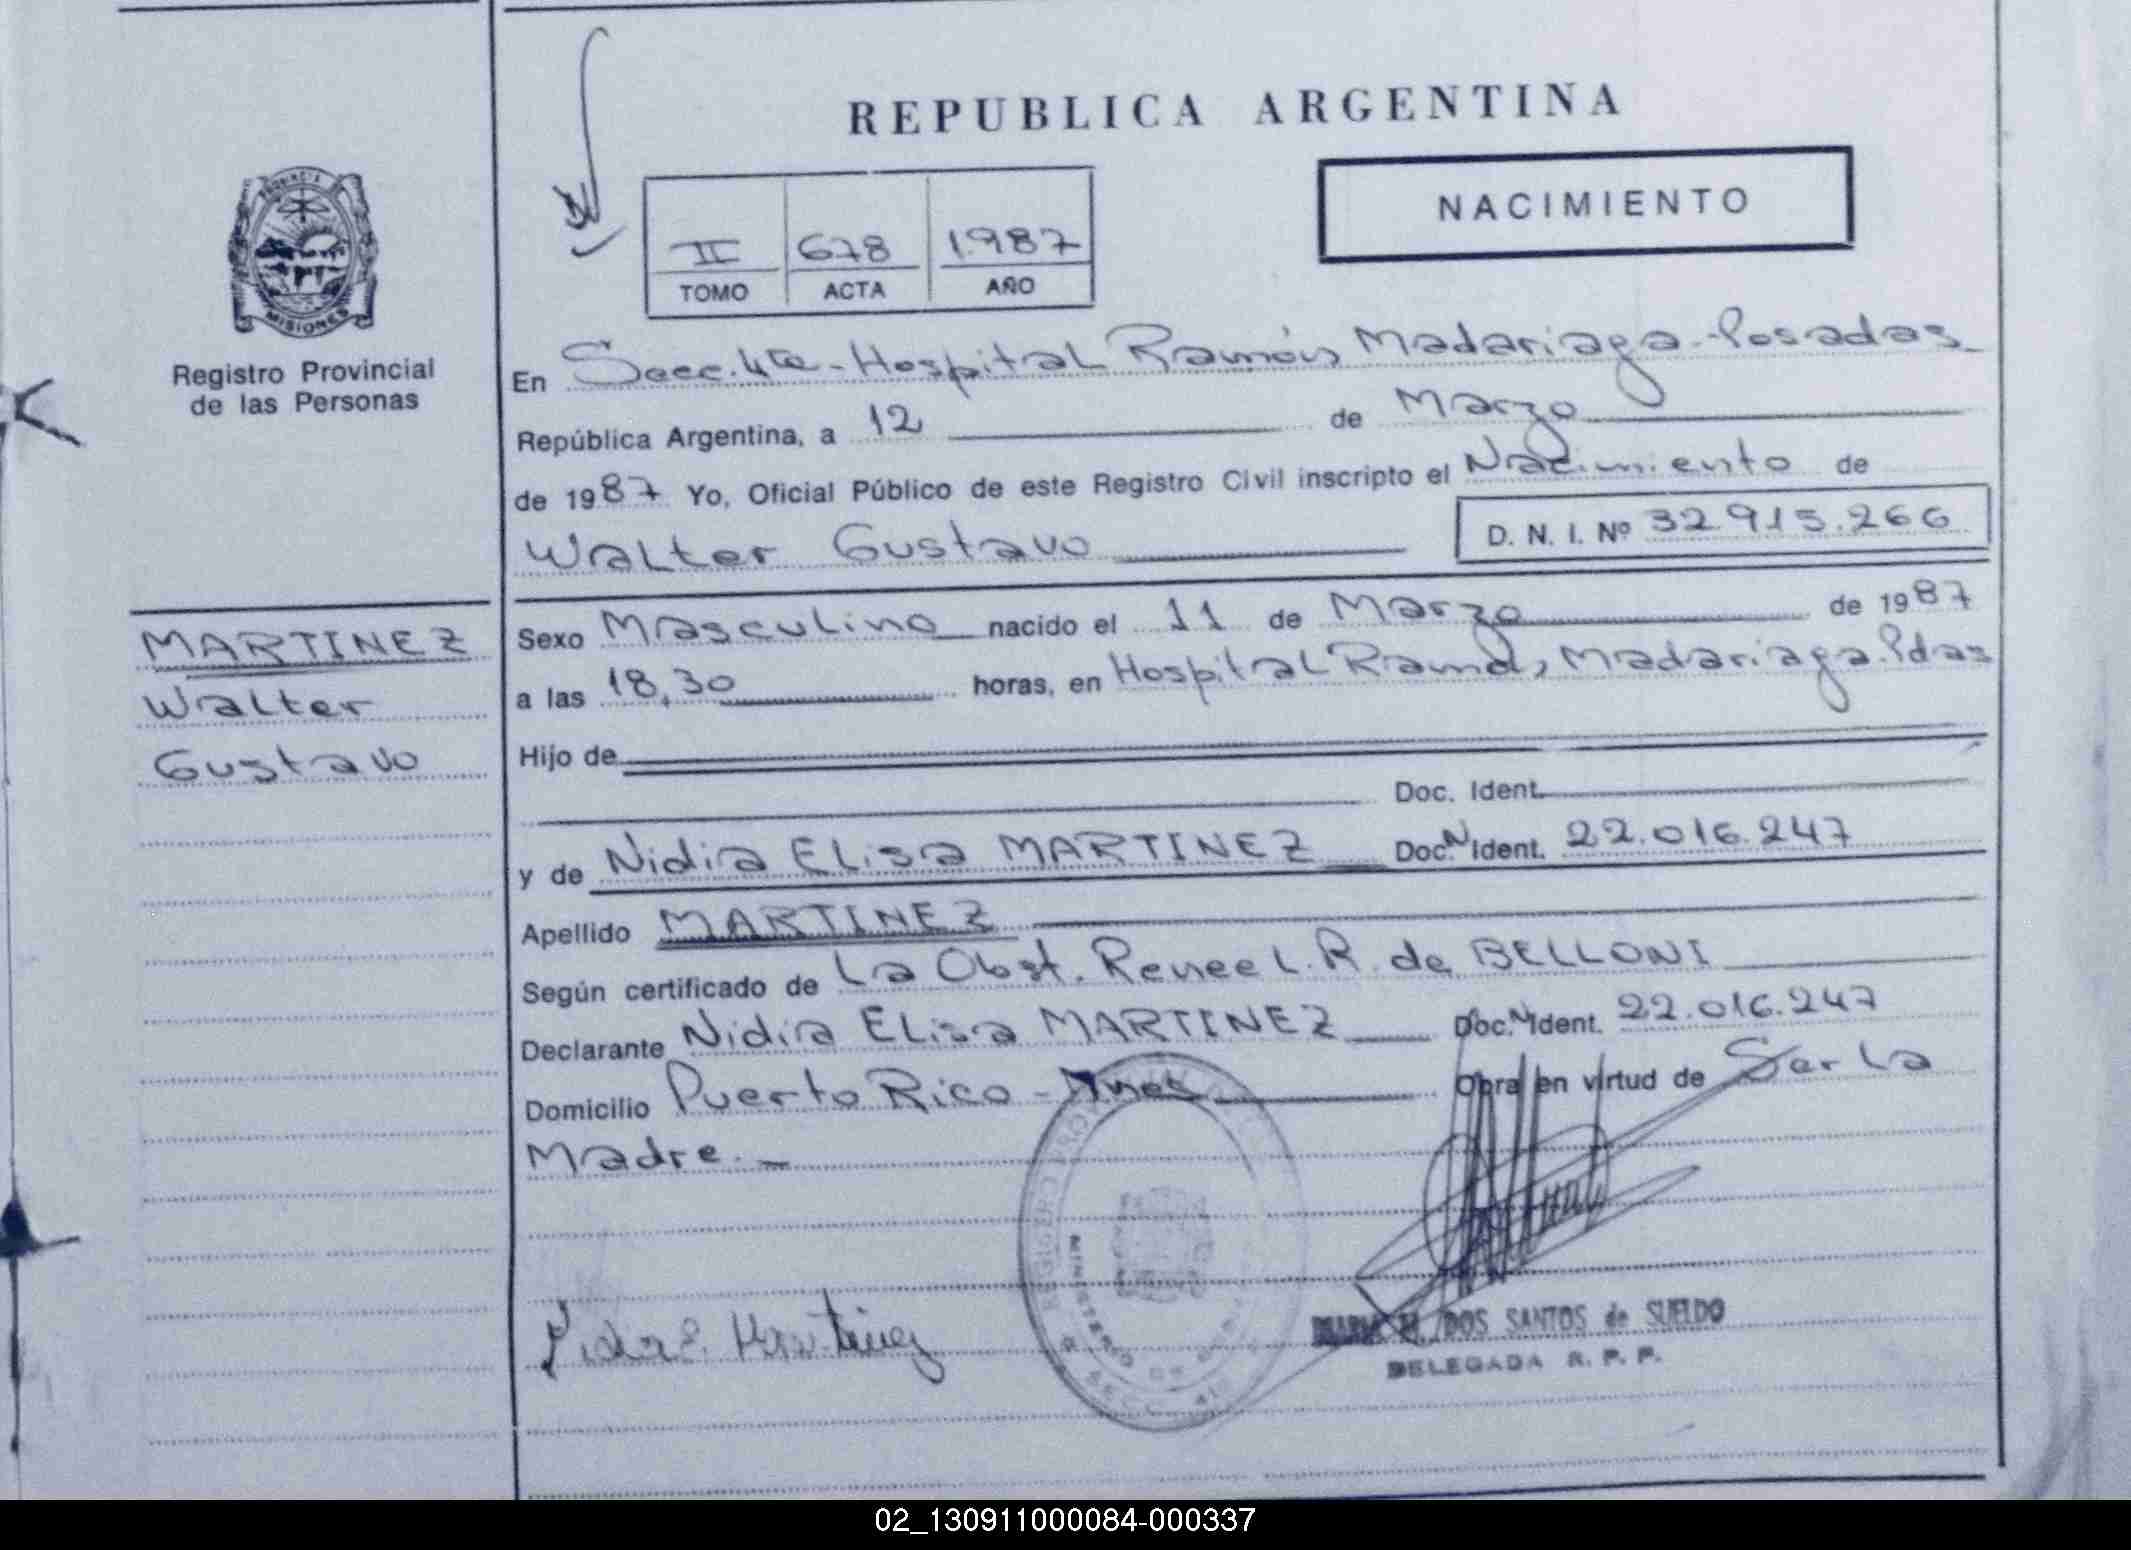 REPUBLICA ARGENTINA
NACIMIENTO
II 678 1987
TOMO ACTA AÑO
PROVINCIA DE
MISIONES
Registro Provincial
de las Personas
MARTINEZ
Walter
Gustavo
En Secc. 4ta - Hospital Ramón Madariaga - Posadas
República Argentina, a 12 de Marzo
de 1987 Yo, Oficial Público de este Registro Civil inscripto el Nacimiento de
Walter Gustavo D. N. I. Nº 32.915.266
Sexo Masculino nacido el 11 de Marzo de 1987
a las 18,30 horas, en Hospital Ramón Madariaga. Pdas
Hijo de
Doc. Ident.
y de Nidia Elisa MARTINEZ Doc. N Ident. 22.016.247
Apellido MARTINEZ
Según certificado de La Obst. Renee L. R. de BELLONI
Declarante Nidia Elisa MARTINEZ Doc. N Ident. 22.016.247
Domicilio Puerto Rico - Mnes Obra en virtud de Ser La
Madre. -
Nidia E. Martinez
REGISTRO PROVINCIAL
MINISTERIO DE
SECC.
DOS SANTOS de SUELDO
DELEGADA R. P. P.
02_130911000084-000337